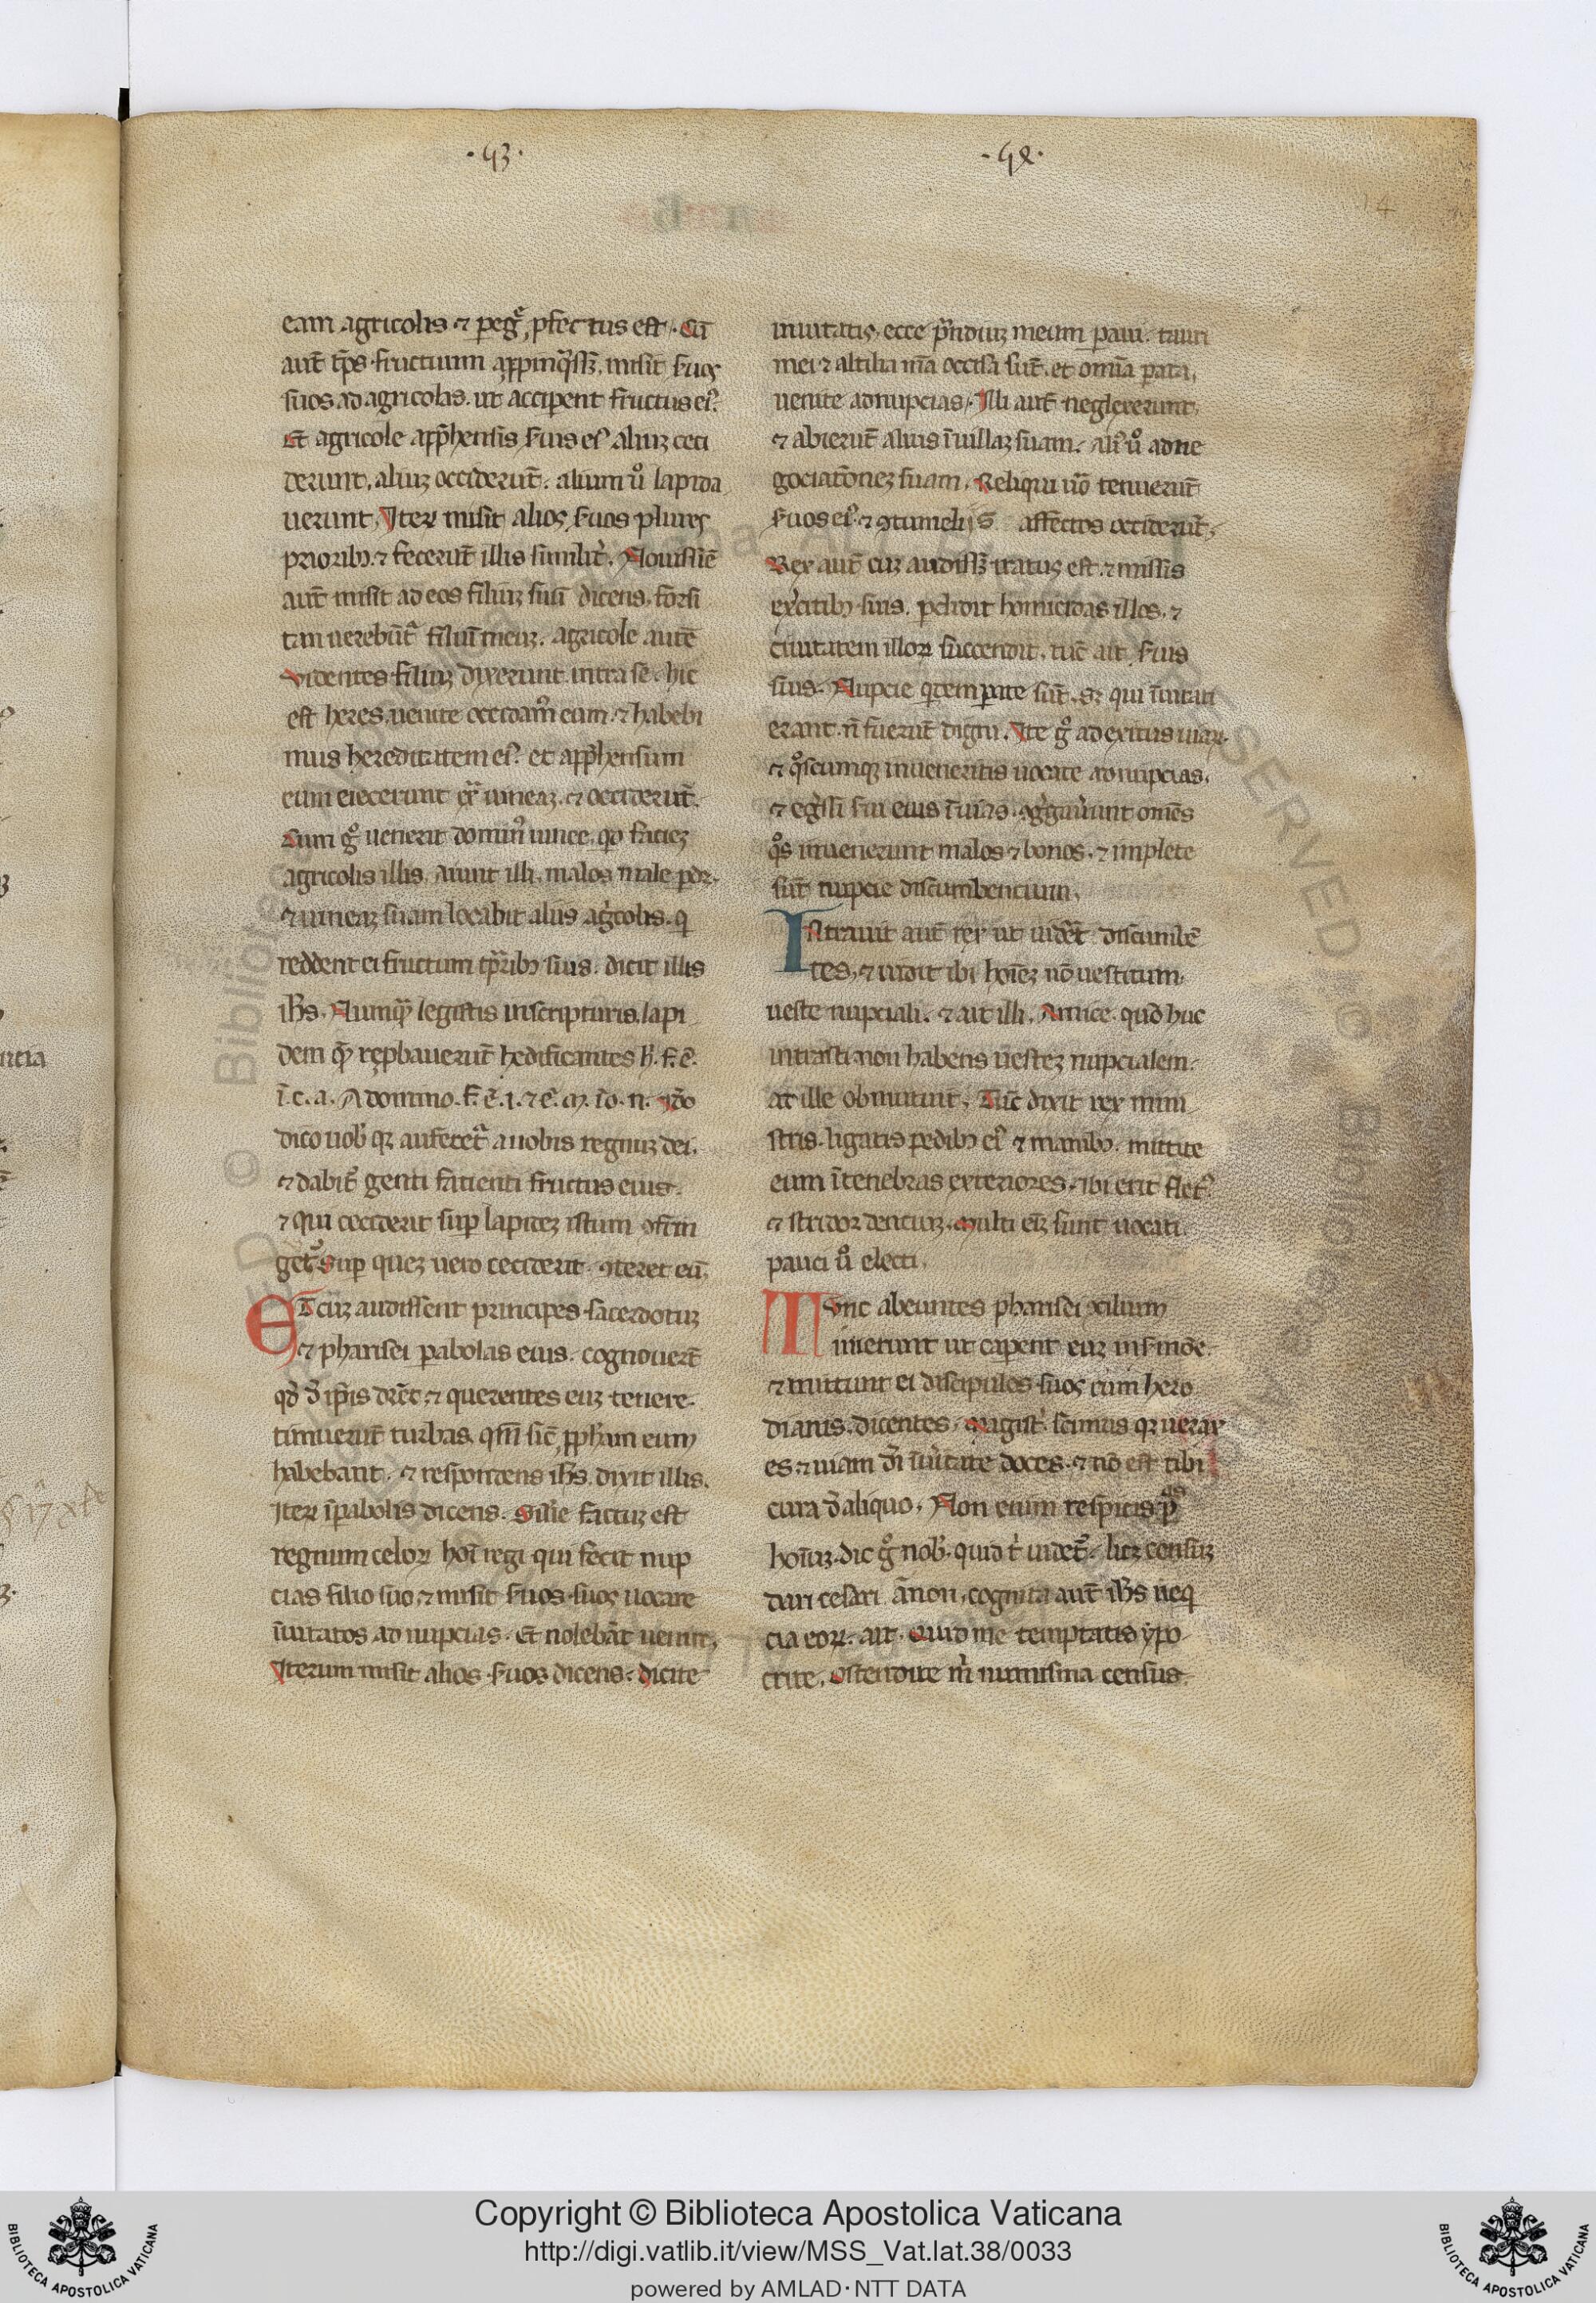 ·43·
·44·
14
eam agricolis ⁊ pegͤ pfectus est. Cū
aut̄ tp̄s fructuum appinq̄ssꝫ, misit suos
suos ad agricolas. ut acciperent fructus ei᷒.
Et agricole app̄hensis suis ei᷒ aliuꝫ ceci
derunt, aliuꝫ occiderūt. alium ů lapida
uerunt. Iterꝝ misit alios suos plures
prioribꝫ ⁊ fecerūt illis simil̓it. Nouissīe
aut̄ misit ad eos filiuꝫ suū dicens. forsi
tan uerebūt᷑ filiū meuꝫ. agricole autē
videntes filiuꝫ dixerunt intra se. hic
est heres. uenite occidam᷒ eum. ⁊ habebi
mus hereditatem ei᷒. et app̄hensum
eum eiecerunt ex̄ uineaꝫ. ⁊ occiderūt.
Cum gͦ uenerit domin᷒ uinee. qͩ faciet
agricolis illis. aiunt illi. malos male pdꝫ.
⁊ uineaꝫ suam locabit aliis ag̓colis. q̄
reddent ei fructum tp̄ribꝫ suis. dicit illis
ih̄s. Numqͣ legistis in scripturis. lapi
dem qͤ rep̱bauerūt hedificantes h̓. f. ē.
ī. c. a. A domino. f. ē. i. ⁊ ē. m. ī o. n. Ido
dico uob̓ qꝛ auferet᷑ a uobis regnuꝫ dei.
⁊ dabit᷑ genti facienti fructus eius.
⁊ qui ceciderit sup lapideꝫ istum ꝯfrin
get᷑. Sup queꝫ uero ceciderit. ꝯteret eū.
Et cuꝫ audissent principes sacerdotuꝫ
⁊ pharisei pabolas eius. cognouerūt
qͩ d̄ ip̄is dicēt. ⁊ querentes euꝫ tenere.
timuerūt turbas. qm̄ sic̄ pp̄ham eum
habebant. ⁊ respondens ih̄s. dixit illis.
Iterꝝ ī pabolis dicens. Sil̓e factuꝫ est
regnum celoꝝ hoī regi qui fecit nup
cias filio suo. ⁊ misit suos suos uocare
īuitatos ad nupcias. Et nolebāt uenire.
Iterum misit alios suos dicens. dicite
inuitatis. ecce p̄ndiuꝫ meum paui. tauri
mei ⁊ altilia m̄a occisa sūt. et omīa pata.
uenite ad nupcias. Illi aut̄ neglexerunt.
⁊ abierūt alius ī uillaꝫ suam. ali᷒ ů ad ne
gociatōneꝫ suam. Reliqui uō tenuerūt
suos ei᷒. ⁊ ꝯtumeliis affectos occiderūt.
Rex aut̄ cuꝫ audissꝫ iratus est. ⁊ missis
exc̓itibꝫ suis. pdidit homicidas illos. ⁊
ciuitatem illoꝝ succendit. tūc ait suis
suis. Nupcie qͥdem pate sūt. sꝫ qui īuitati
erant. n̄ fuerūt digni. Ite gͦ ad exitus uiaꝝ.
⁊ qͦscumqꝫ inueneritis uocate ad nupcias.
⁊ eg̓ssi sui eius ī uias. ꝯg̓gauerunt omēs
qͦs inuenerunt malos ⁊ bonos. ⁊ implete
sūt nupcie discumbencium.
Intrauit aut̄ rex ut uidēt discumbē
tes. ⁊ uidit ibi hoīeꝫ nō uestitum
ueste nupciali. ⁊ ait illi. Amice. quōd huc
intrasti non habens uesteꝫ nupcialem.
at ille obmutuit. Tūc dixit rex mini
stris. ligatis pedibꝫ ei᷒ ⁊ manibꝫ. mittite
eum ī tenebras exteriores. ibi erit flet᷒
⁊ stridor denciuꝫ. multi eīꝫ sunt uocati.
pauci ů electi.
Tunc abeuntes pharisei ꝯsilium
inierunt ut capent euꝫ in smōe.
⁊ mittunt ei discipulos suos cum hero
dianis. dicentes. Magist̓. scimus qꝛ uerax
es. ⁊ uiam d̄i ī ueritate doces. ⁊ nō est tibi
cura d̄ aliquo. Non enim respicis p̱
hoīuꝫ. dic gͦ nob̓. quid t̓ uidet᷑. licꝫ censuꝫ
dari cesari. an non. cognita aut̄ ih̄s neq̄
cia eoꝝ. ait. Quid me temptatis ypo
crite. Ostendite m̓ numisma census.
Copyright © Biblioteca Apostolica Vaticana
http://digi.vatlib.it/view/MSS_Vat.lat.38/0033
powered by AMLAD·NTT DATA
BIBLIOTECA APOSTOLICA VATICANA
BIBLIOTECA APOSTOLICA VATICANA